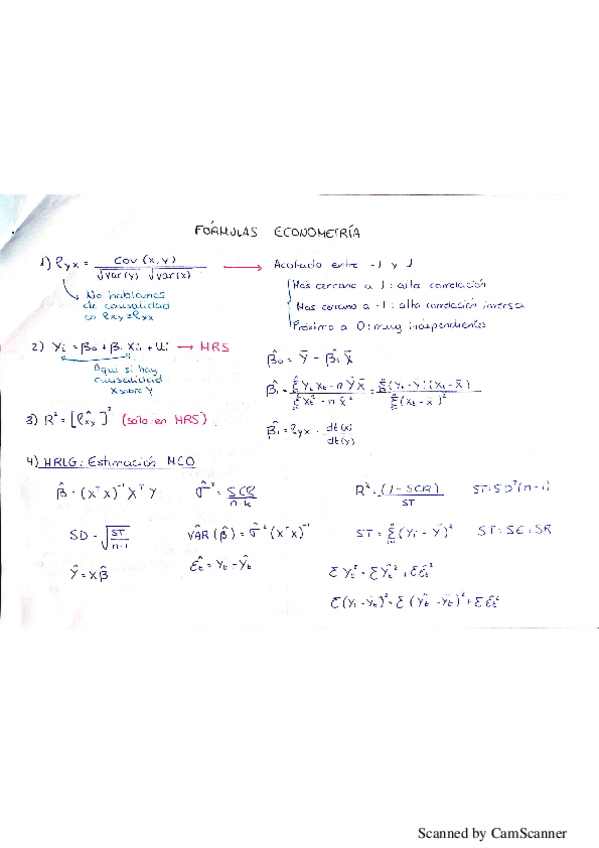 FÓRMULAS ECONOMETRÍA
1) ρyx = Cov (x,y) / √var(y) √var(x) → Acotado entre -1 y 1
No hablamos de causalidad en ρxy = ρyx
Más cercano a 1: alta correlación
Más cercano a -1: alta correlación inversa
Próximo a 0: muy independientes
2) Yi = β0 + β1 X1i + Ui → MRS
Aquí si hay causalidad X sobre Y
β̂0 = Ȳ - β̂1 X̄
β̂1 = Σ Yt Xt - n Ȳ X̄ / Σ Xt² - n x̄² = Σ (Yt - Ȳ) (Xt - X̄) / Σ (Xt - X̄)²
3) R² = [ρ̂xy]² (solo en MRS)
β̂1 = ρyx · dt(x) / dt(y)
4) MRLG: Estimación MCO
β̂ = (XᵀX)⁻¹ Xᵀ Y
σ̂² = SCR / n-k
R² = (1 - SCR) / ST
ST = SD² (n-1)
SD = √ST / n-1
VÂR (β̂) = σ̂² (XᵀX)⁻¹
ST = Σ (Yi - Ȳ)²
ST = SE + SR
Ŷ = Xβ̂
ε̂t = Yt - Ŷt
Σ Yt² = Σ Ŷt² + Σ ε̂t²
Σ (Yi - Ȳt)² = Σ (Ŷt - Ȳt)² + Σ ε̂t²
Scanned by CamScanner